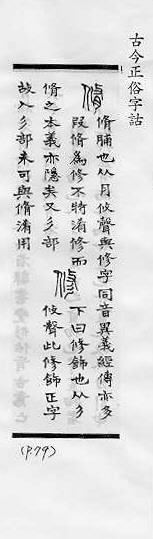 古今正俗字詁
脩
脩脯也从月攸聲與修字同音異義經傳亦多
叚脩為修不將淆修而
脩之本義亦隱矣又彡部
修
下曰修飾也从彡
攸聲此修飾正字
故入彡部未可與脩淆用
(P.79)